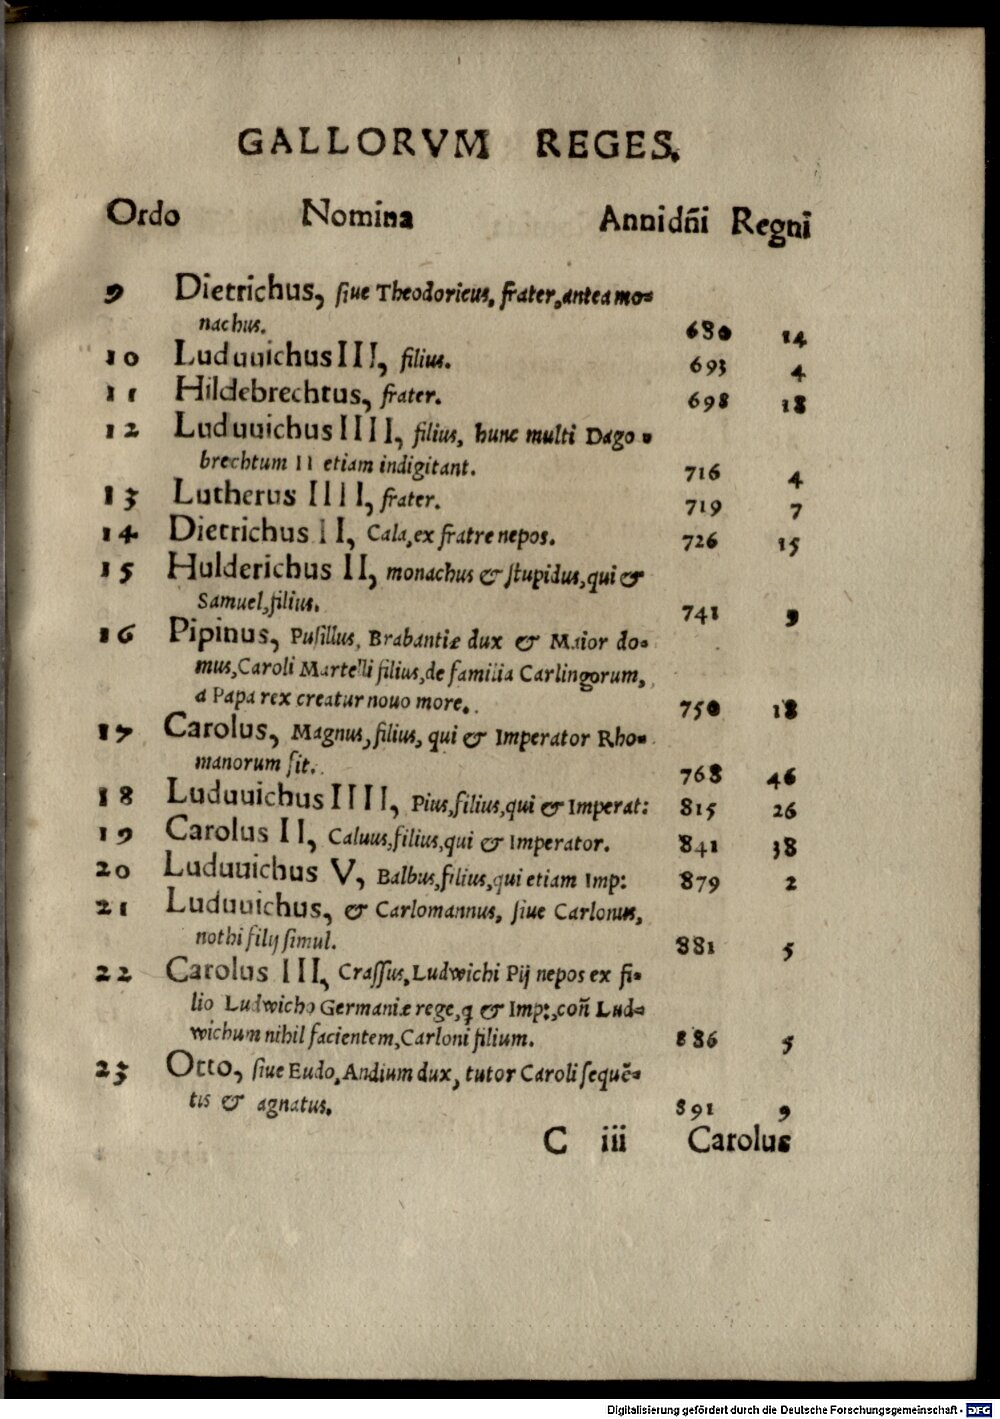 GALLORVM REGES.
Ordo Nomina Anni dñi Regni
9 Dietrichus, siue Theodoricus, frater, antea mo-
nachus. 680 14
10 Luduuichus III, filius. 693 4
11 Hildebrechtus, frater. 698 18
12 Luduuichus IIII, filius, hunc multi Dago-
brechtum II etiam indigitant. 716 4
13 Lutherus IIII, frater. 719 7
14 Dietrichus II, Cala, ex fratre nepos. 726 15
15 Hulderichus II, monachus & stupidus, qui &
Samuel, filius. 741 9
16 Pipinus, Pusillus, Brabantiæ dux & Maior do-
mus, Caroli Martelli filius, de familia Carlingorum,
a Papa rex creatur nouo more. 750 18
17 Carolus, Magnus, filius, qui & Imperator Rho-
manorum fit. 768 46
18 Luduuichus IIII, Pius, filius, qui & Imperat: 815 26
19 Carolus II, Caluus, filius, qui & Imperator. 841 38
20 Luduuichus V, Balbus, filius, qui etiam Imp: 879 2
21 Luduuichus, & Carlomannus, siue Carlonus,
nothi filij simul. 881 5
22 Carolus III, Crassus, Ludwichi Pij nepos ex fi-
lio Ludwicho Germaniæ rege, q & Imp:, coñ Lud-
wichum nihil facientem, Carloni filium. 886 5
23 Otto, siue Eudo, Andium dux, tutor Caroli sequē-
tis & agnatus. 891 9
C iii Carolus
Digitalisierung gefördert durch die Deutsche Forschungsgemeinschaft - DFG